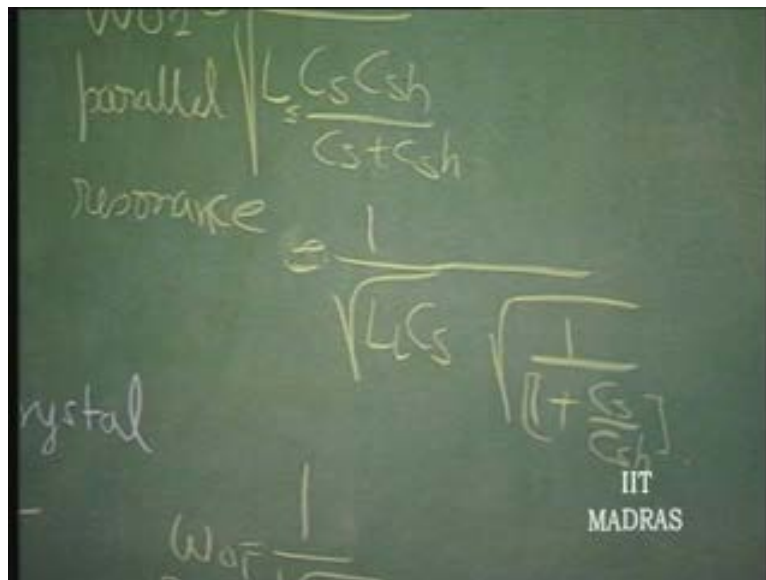 parallel √ Ls Cs Csh
Cs + Csh
resonance
= 1
√LsCs √ 1
[1 + Cs
Csh]
rystal
IIT
MADRAS
1